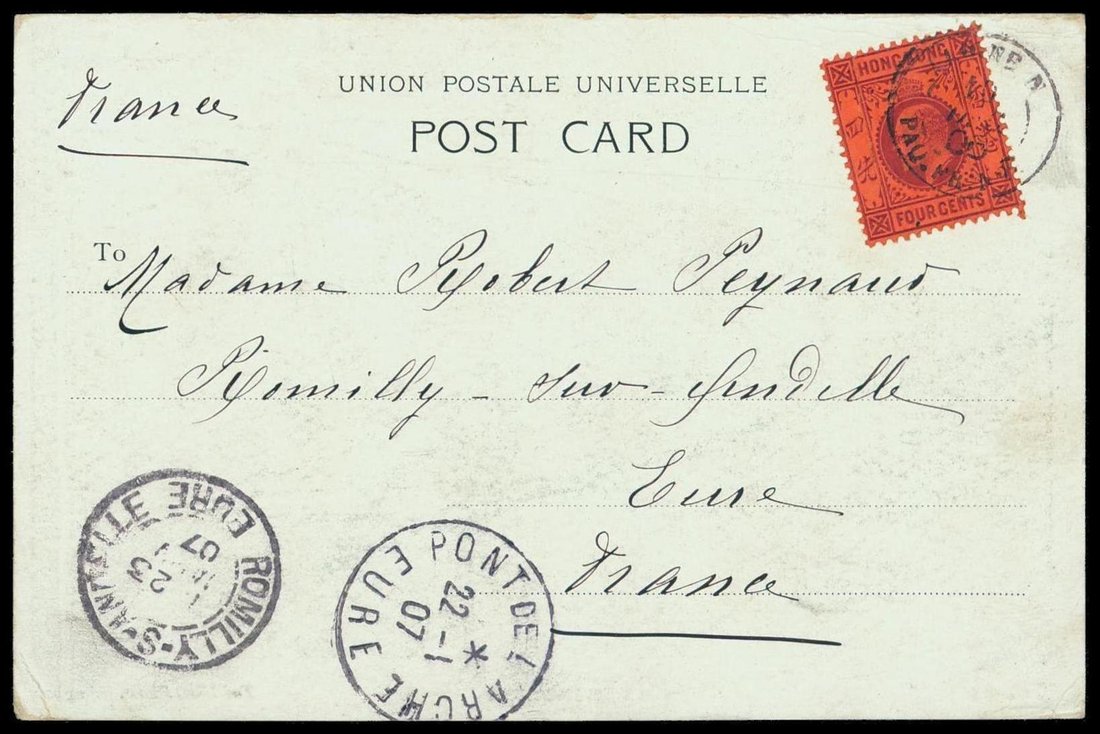 France
UNION POSTALE UNIVERSELLE
POST CARD
HONG KONG
四 先
香港
FOUR CENTS
LIGNE N
PAQ. FR.
To Madame Robert Peynaud
Romilly - sur - Andelle
Eure
France
ROMILLY-S-ANDELLE EURE
23
07
PONT DE L'ARCHE EURE
22 - 1
07